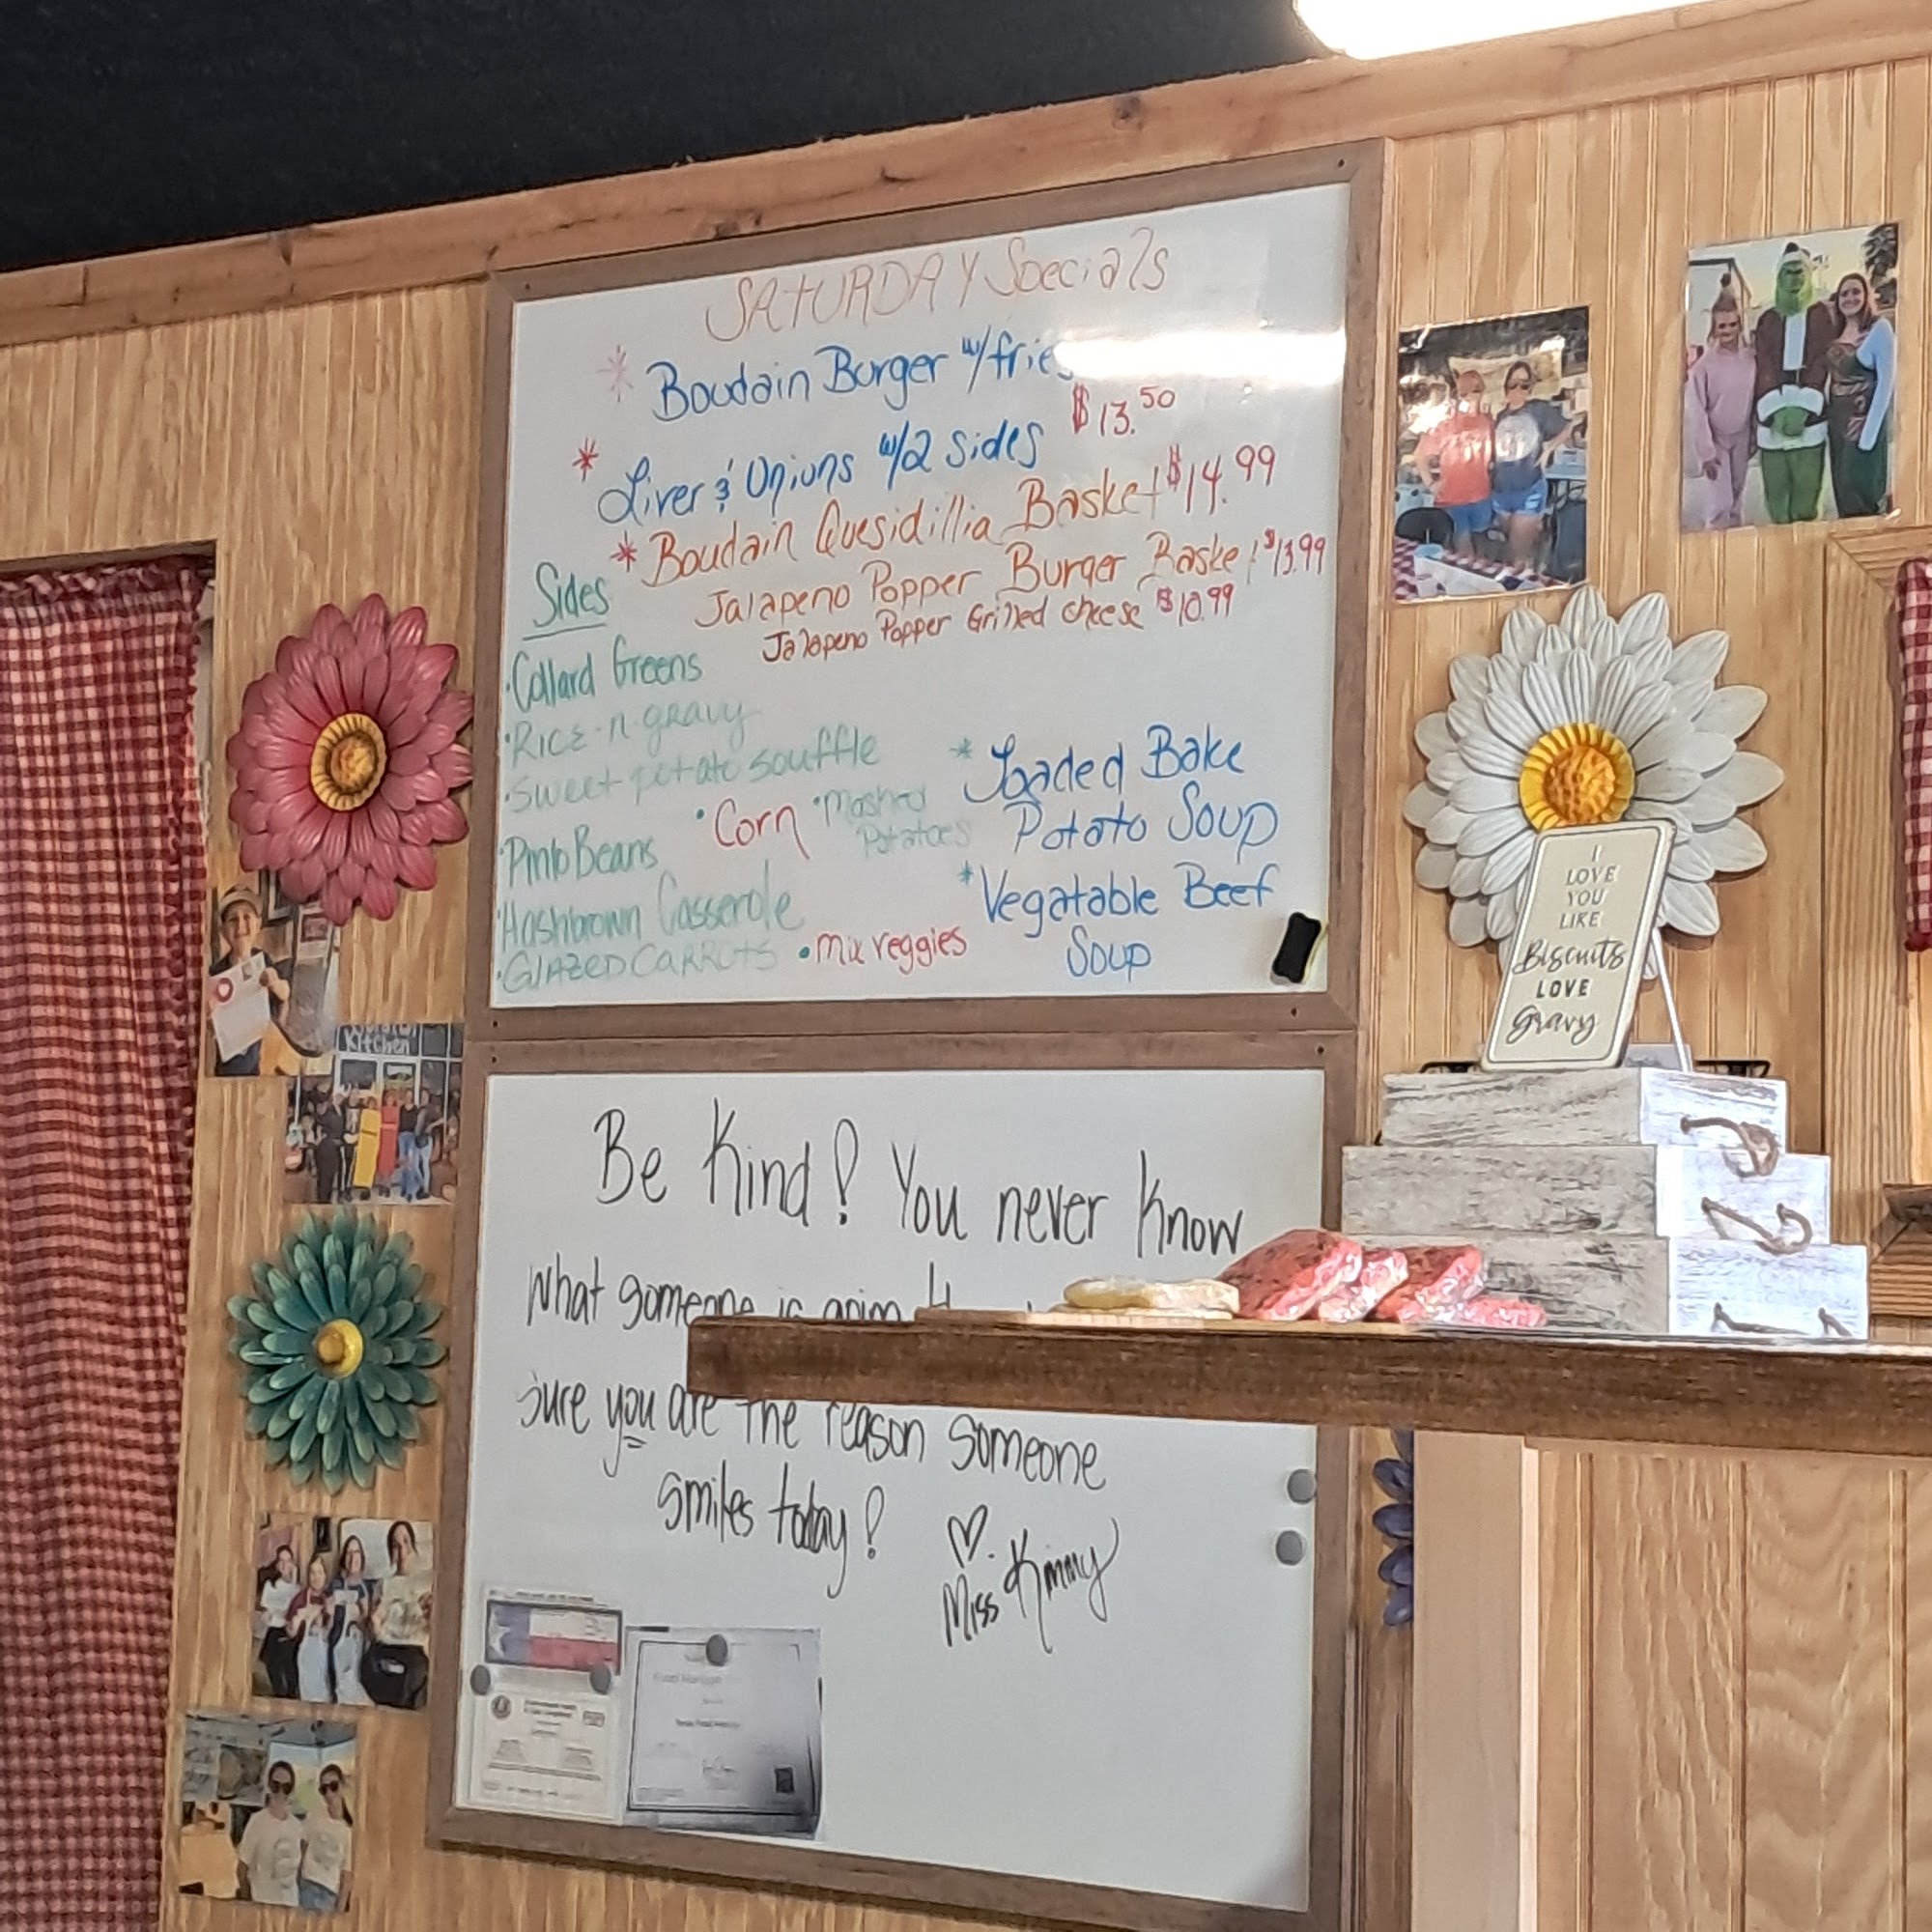 SATURDAY Specials
* Boudain Burger w/ fries
$13.50
* Liver & Onions w/2 sides
* Boudain Quesidillia Basket $14.99
Jalapeno Popper Burger Basket $13.99
Jalapeno Popper Grilled cheese $10.99
Sides
·Collard Greens
·Rice-n-gravy
·Sweet potato souffle
·Corn
·Mashed
Potatoes
·Pinto Beans
·Hashbrown Casserole
·GlAZED CARROTS
·mix veggies
* Loaded Bake
Potato Soup
* Vegatable Beef
Soup
I
LOVE
YOU
LIKE
Biscuits
LOVE
Gravy
Kitchen
Be Kind! You never know
what someone is
sure you are the reason someone
smiles today!
Miss Kimmy